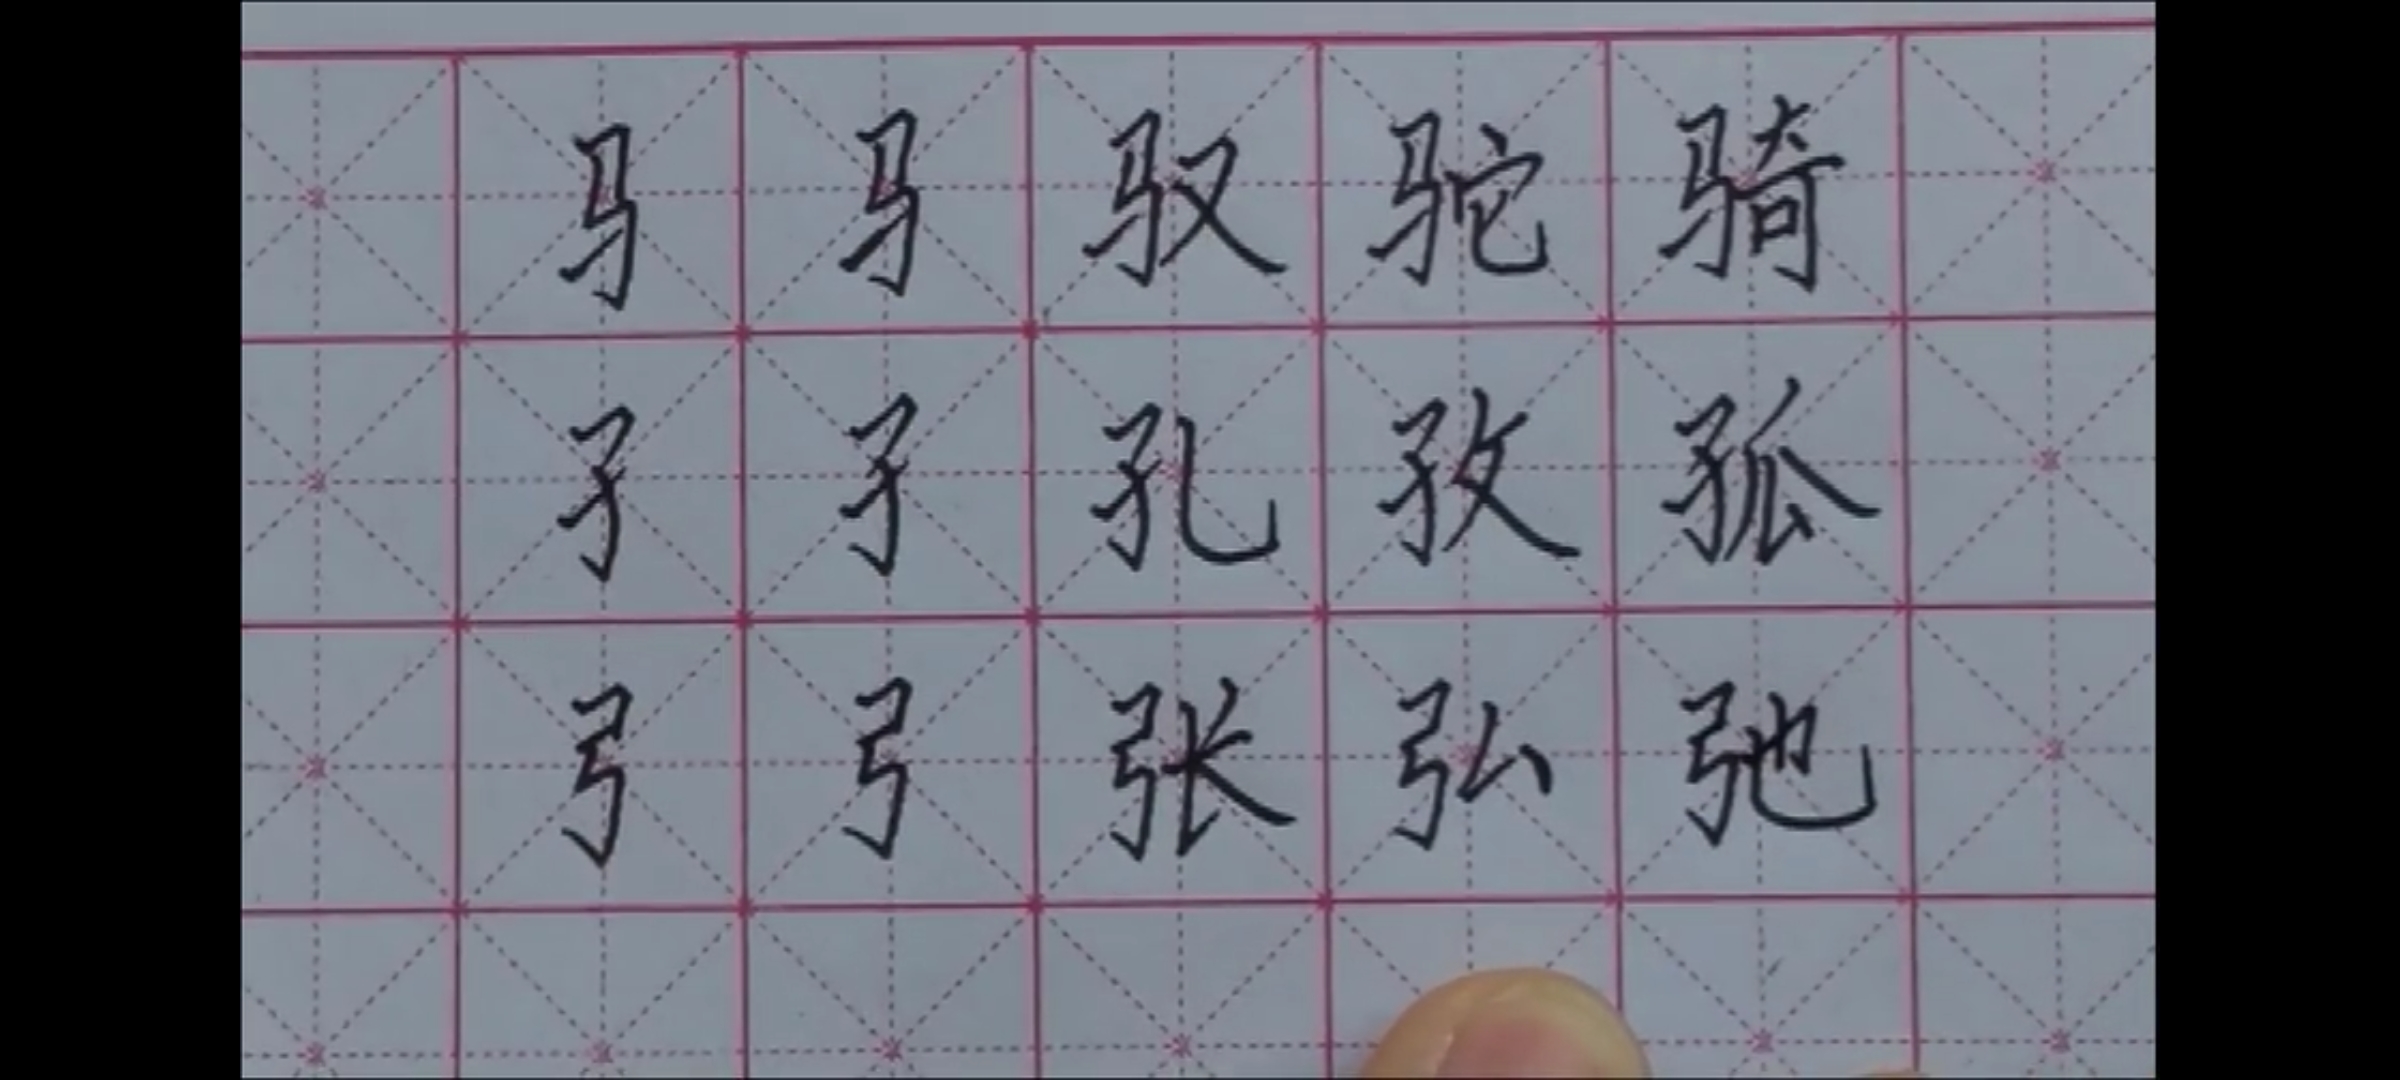 马马驭驼骑
孑孑孔孜孤
弓弓张弘弛